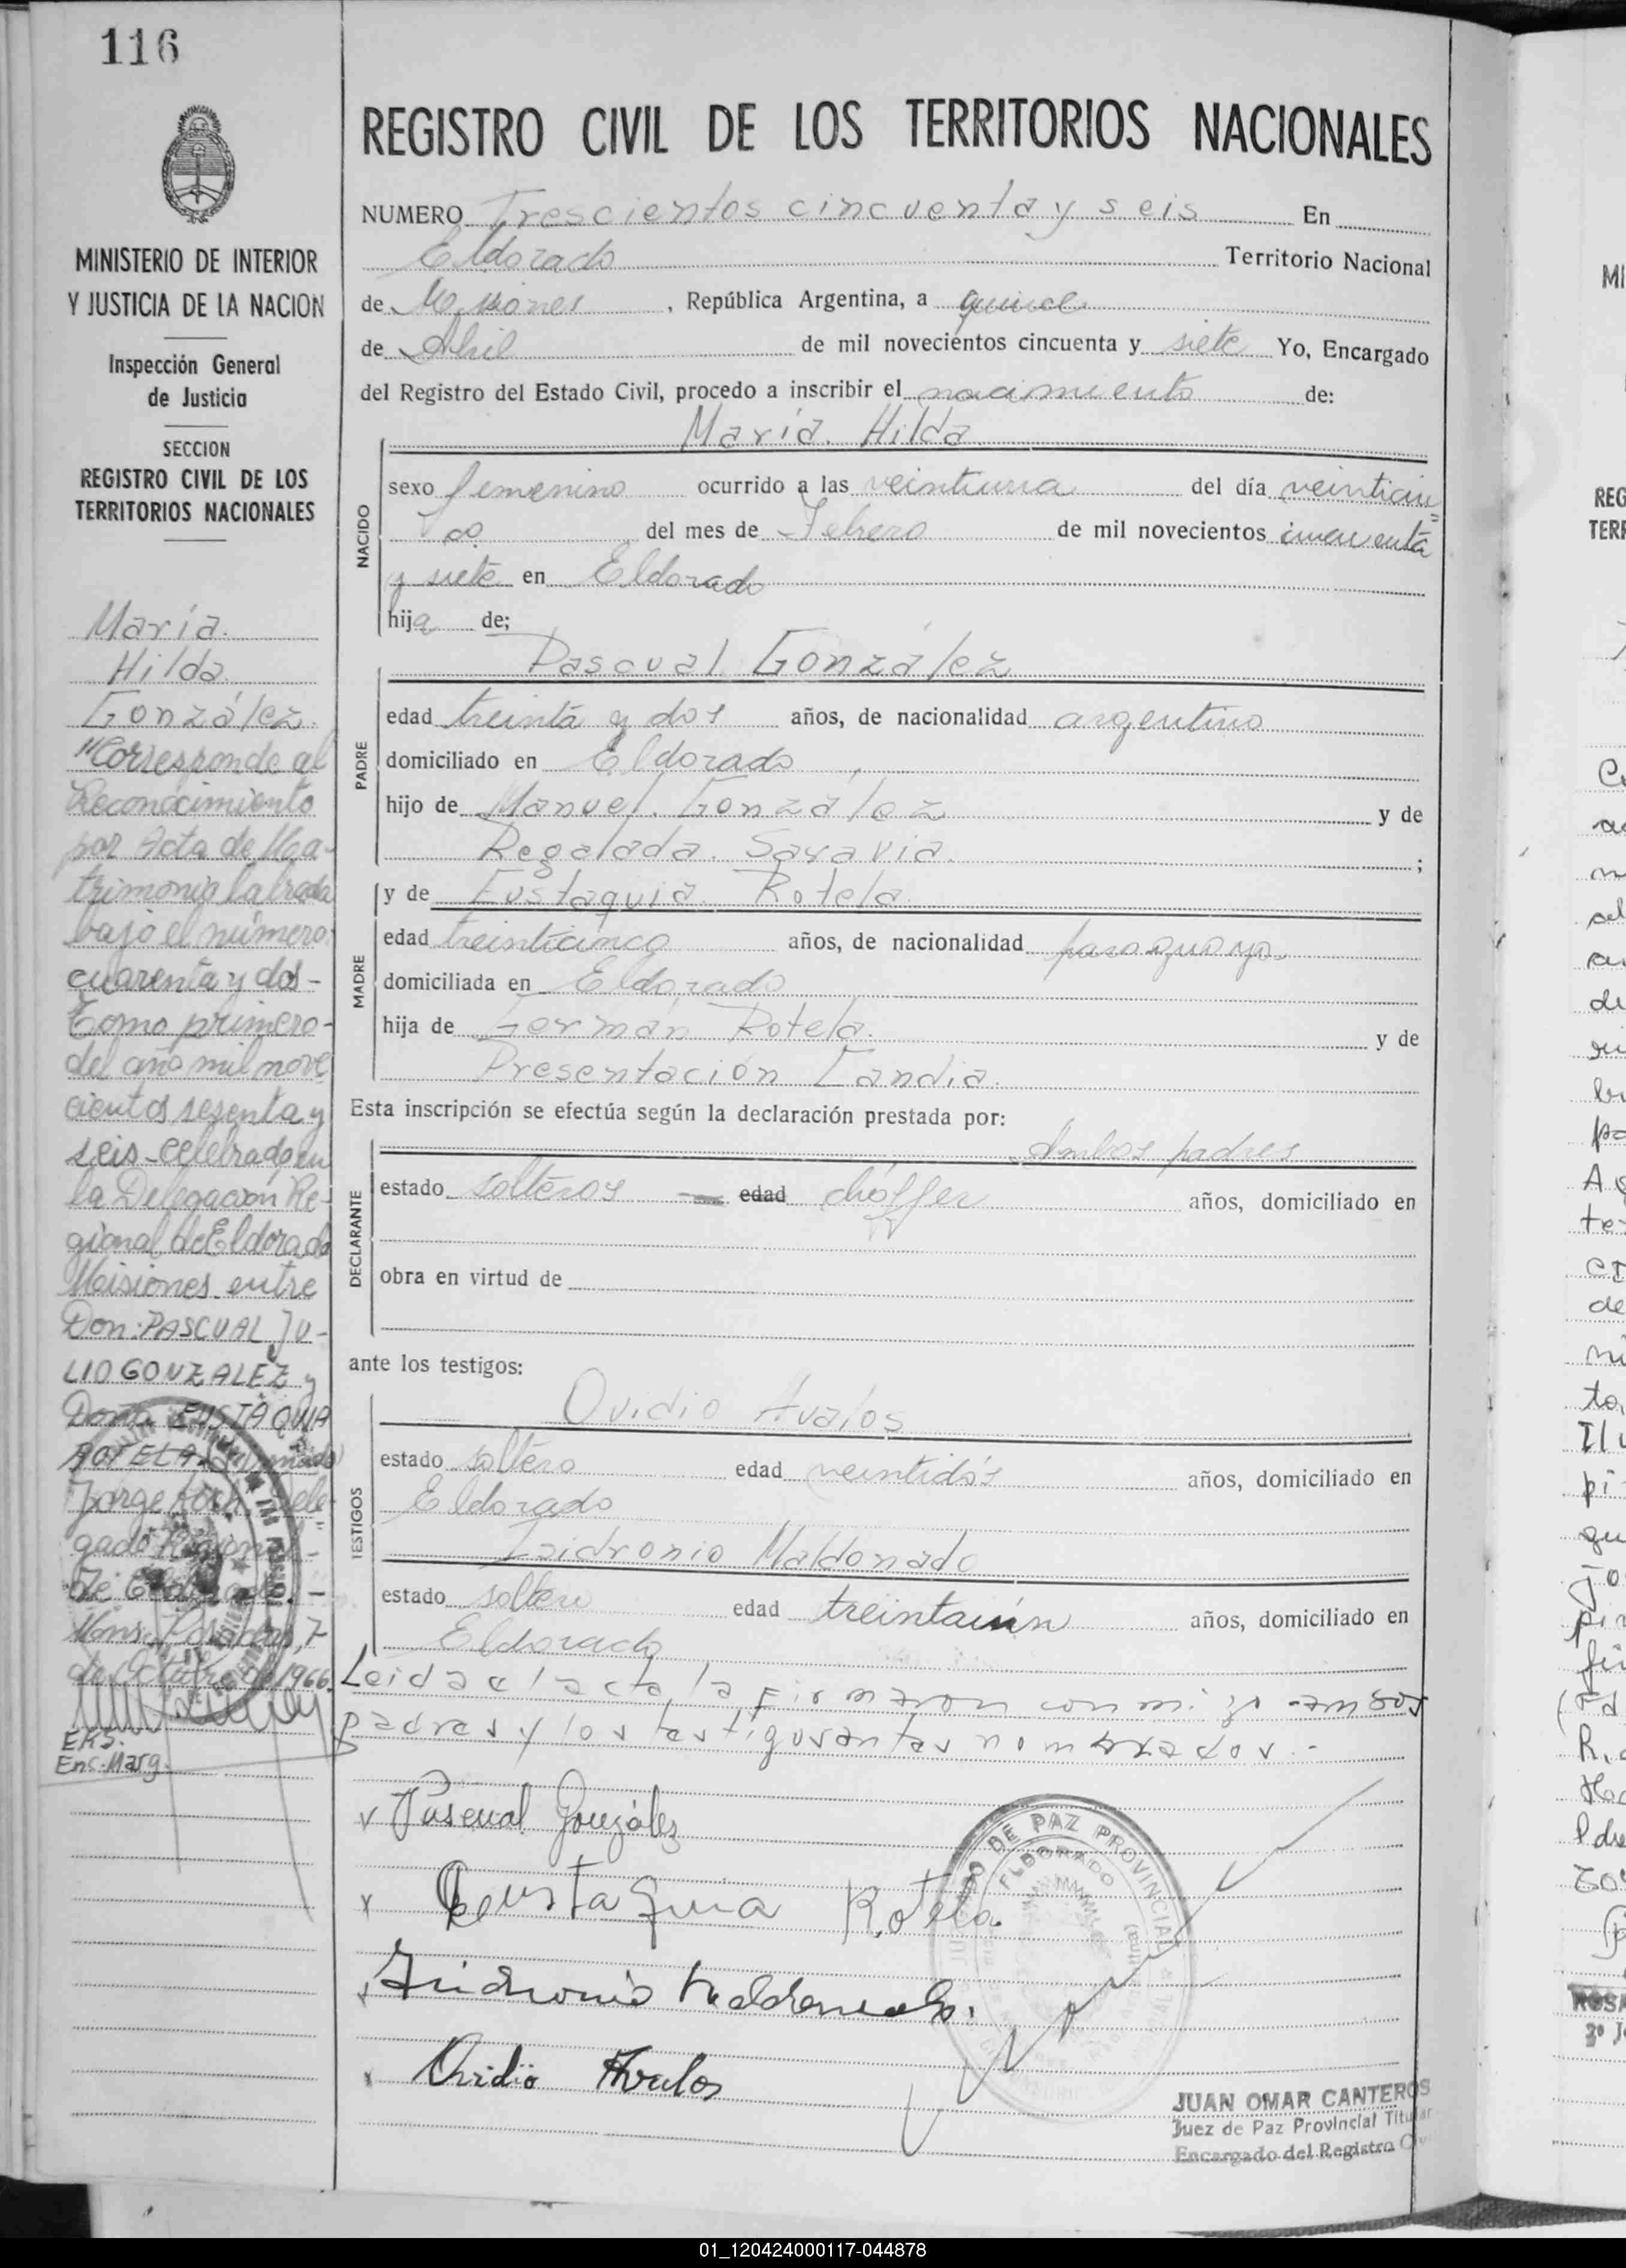 116
MINISTERIO DE INTERIOR
Y JUSTICIA DE LA NACION
Inspección General
de Justicia
SECCION
REGISTRO CIVIL DE LOS
TERRITORIOS NACIONALES
María
Hilda
González
"Corresponde al
Reconocimiento
por Acta de Ma-
trimonio labrada
bajo el número
cuarenta y dos-
Tomo primero-
del año mil nove
cientos sesenta y
seis-celebrado en
la Delegación Re-
gional de Eldorado
Misiones entre
Don: PASCUAL JU-
LIO GONZALEZ y
Doña EUSTAQUIA
ROTELA
Jorge Dele
gado Regional
de
Posadas, 7
de Octubre de 1966
EKS.
Enc. Marg.
REGISTRO CIVIL DE LOS TERRITORIOS NACIONALES
NUMERO Trescientos cincuenta y seis En
Eldorado Territorio Nacional
de Misiones, República Argentina, a quince
de Abril de mil novecientos cincuenta y siete Yo, Encargado
del Registro del Estado Civil, procedo a inscribir el nacimiento de:
María Hilda
NACIDO
sexo femenino ocurrido a las veintiuna del día veinticin=
co del mes de Febrero de mil novecientos cincuenta
y siete en Eldorado
hija de;
Pascual González
PADRE
edad treinta y dos años, de nacionalidad argentino
domiciliado en Eldorado
hijo de Manuel González y de
Regalada Saravia;
y de Eustaquia Rotela
MADRE
edad treinticinco años, de nacionalidad paraguaya
domiciliada en Eldorado
hija de Germán Rotela y de
Presentación Candia
Esta inscripción se efectúa según la declaración prestada por:
Ambos padres
DECLARANTE
estado solteros edad chóffer años, domiciliado en
obra en virtud de
ante los testigos:
Ovidio Avalos
TESTIGOS
estado soltero edad veintidós años, domiciliado en
Eldorado
Isidronio Maldonado
estado soltero edad treintaiún años, domiciliado en
Eldorado
Leida el acta, la firmaron conmigo ambos
padres y los testigos antes nombrados.-
Pascual González
Eustaquia Rotela
Isidronio Maldonado.
Ovidio Avalos
JUZGADO DE PAZ PROVINCIAL
ELDORADO
JUAN OMAR CANTEROS
Juez de Paz Provincial Titular
Encargado del Registro Civil
01_120424000117-044878